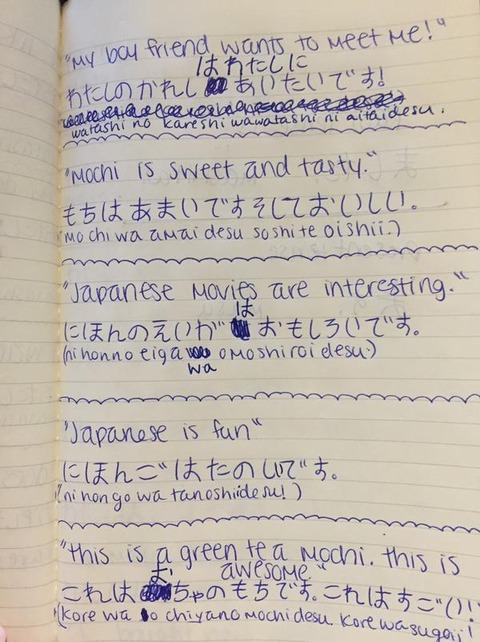 "My boyfriend wants to Meet Me!"
わたしのかれしはわたしにあいたいです!
watashi no kareshi wawatashi ni aitaidesu.
"Mochi is sweet and tasty."
もちはあまいですそしておいしい。
(mochi wa amai desu soshite oishii.)
"Japanese Movies are interesting."
にほんのえいがはおもしろいです。
(ni honno eiga wa omoshiroi desu.)
"Japanese is fun"
にほんごはたのしいです。
(ni hon go wa tanoshiidesu!)
"This is a green tea Mochi. This is awesome"
これはおちゃのもちです。これはすごい!
(Kore wa o chiyano mochi desu. Kore wa sugoi!